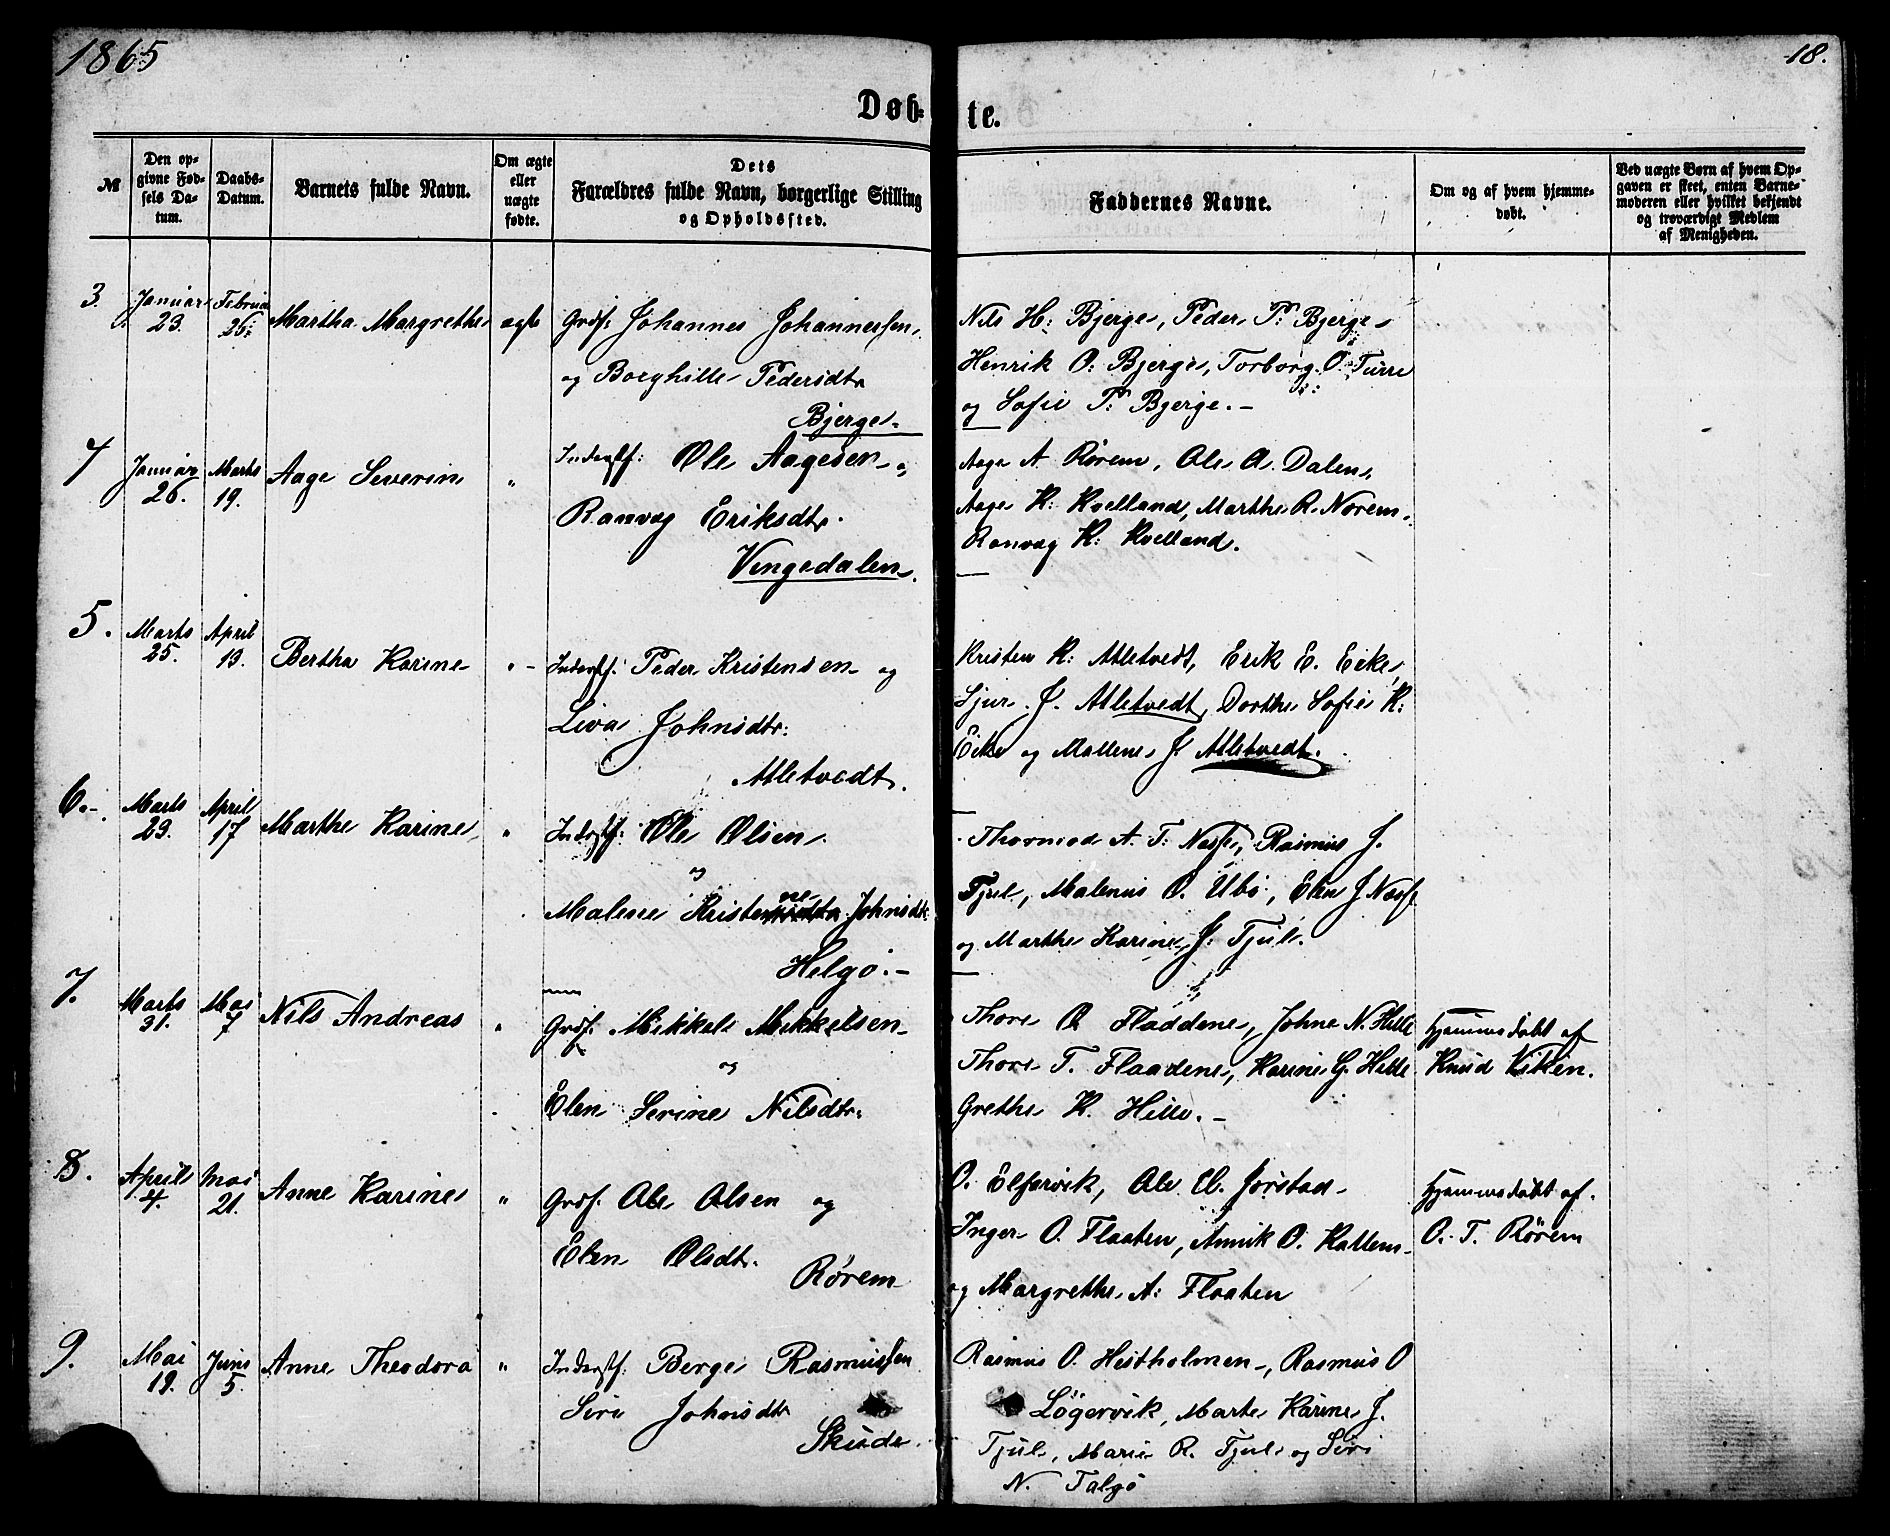 1865
18.
Døb-
te.
№
Den op-
givne Fød-
sels Da-
tum.
Daabs-
Datum.
Barnets fulde Navn.
Om ægte
eller
uægte
fødte.
Dets
Forældres fulde Navn, borgerlige Stilling
og Opholdssted.
Faddernes Navne.
Om og af hvem hjemme-
døbt.
Ved uægte Børn af hvem Op-
gaven er skeet, enten Barne-
moderen eller hvilket bekjendt
og troværdigt Medlem
af Menigheden.
3.
Januar
23.
Februar
25.
Martha Margrethe
ægte
Grdf: Johannes Johannessen
og Borghille Pedersdtr
Bjerge.
Nils H: Bjerge, Peder P: Bjerge
Henrik O. Bjerge, Torborg O. Turre
og Sofie P: Bjerge.-
4
Januar
26.
Marts
19.
Aage Severin
"
Inderstf: Ole Aagesen og
Ranvæg Eriksdtr.
Vengedalen.
Aage A. Rørem, Ole A. Dalen,
Aage K: Kvelland, Marthe R. Norem.
Ranvæg K: Kvelland.
5.
Marts
25.
April
13.
Bertha Karine
"-
Inderstf: Peder Kristensen og
Liva Johnsdtr:
Atletvedt.
Kristen K: Atletvedt, Erik E. Eeke,
Sjur J. Atletvedt, Dorthe Sofie K:
Eeke og Mallene J. Atletvedt.
6.-
Marts
29.
April
17
Marthe Karine
"
Inderstf: Ole Olsen.
og
Malene Kristene Johnsdtr:
Helgø.-
Thormod A. T: Næsse, Rasmus J.
Tjul, Malenus O. Ubø, Elen J Næss
og Marthe Karine J: Tjul.
7.
Marts
31.
Mai
7
Nils Andreas
"
Grdf: Mikkel Mikkelsen
og
Elen Serine Nilsdtr:
Thore O. Fladdene, Johne N. Hille
Thore T. Flaadene, Karine G. Hille
Grethe K. Hille.-
Hjemmedøbt af
Knud Viken.
8.
April
4.
Mai
21.
Anne Karine
"
Grdf. Ole Olsen og
Elen Olsdtr.
Rørem
O. Elfarvik, Ole El. Jørstad
Inger O. Flaaten, Annik O. Kallem
og Margrethe A: Flaaten
Hjemmedøbt af.
O. T. Rørem
9.
Mai
19.
Juni
5.
Anne Theodora
"
Inderstf. Berge Rasmussen
Siri Johnsdtr
Skude.
Rasmus O. Hestholmen, Rasmus O
Løgervik, Marte Karine J.
Tjul, Marie R. Tjul og Siri
N. Talgø